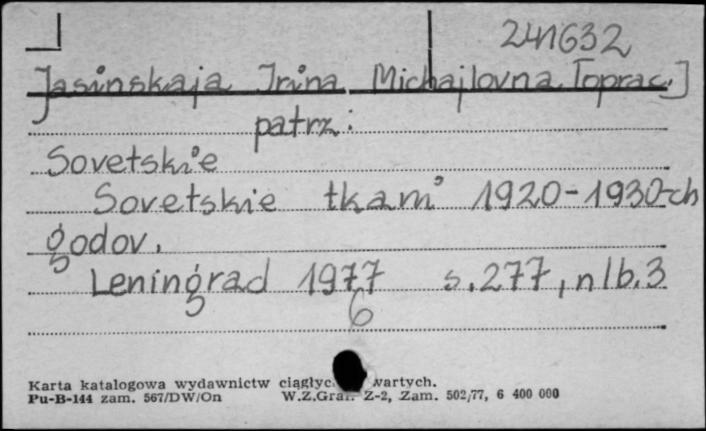 241632
Jasinskaja Irina Michajlovna [oprac.]
patrz:
Sovetskie
Sovetskie tkani 1920-1930-ch
godov.
Leningrad 1977 s. 277, nlb. 3
6
Karta katalogowa wydawnictw wartych.
Pu-B-144 zam. 567/DW/On W.Z.Graf. Z-2, Zam. 502/77, 6 400 000